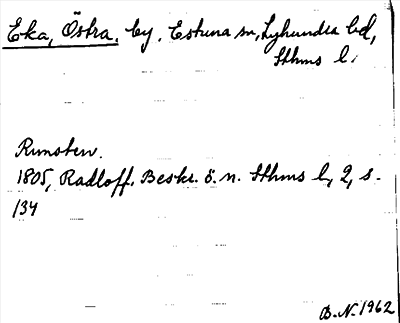 Eka, Östra, by, Estuna sn, Lyhundra hd,
Sthms l.
Runsten.
1805, Radloff. Beskr. ö. n. Sthms l, 2, s.
134
B.N. 1962